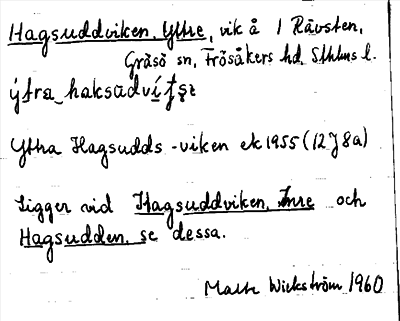 Hagsuddviken, Yttre, vik å 1 Rävsten,
Gräsö sn, Frösåkers hd, Sthlms l.
Yttra Hagsudds -viken ek 1955 (12J8a)
Ligger vid Hagsuddviken, Inre och
Hagsudden, se dessa.
Matts Wickström 1960